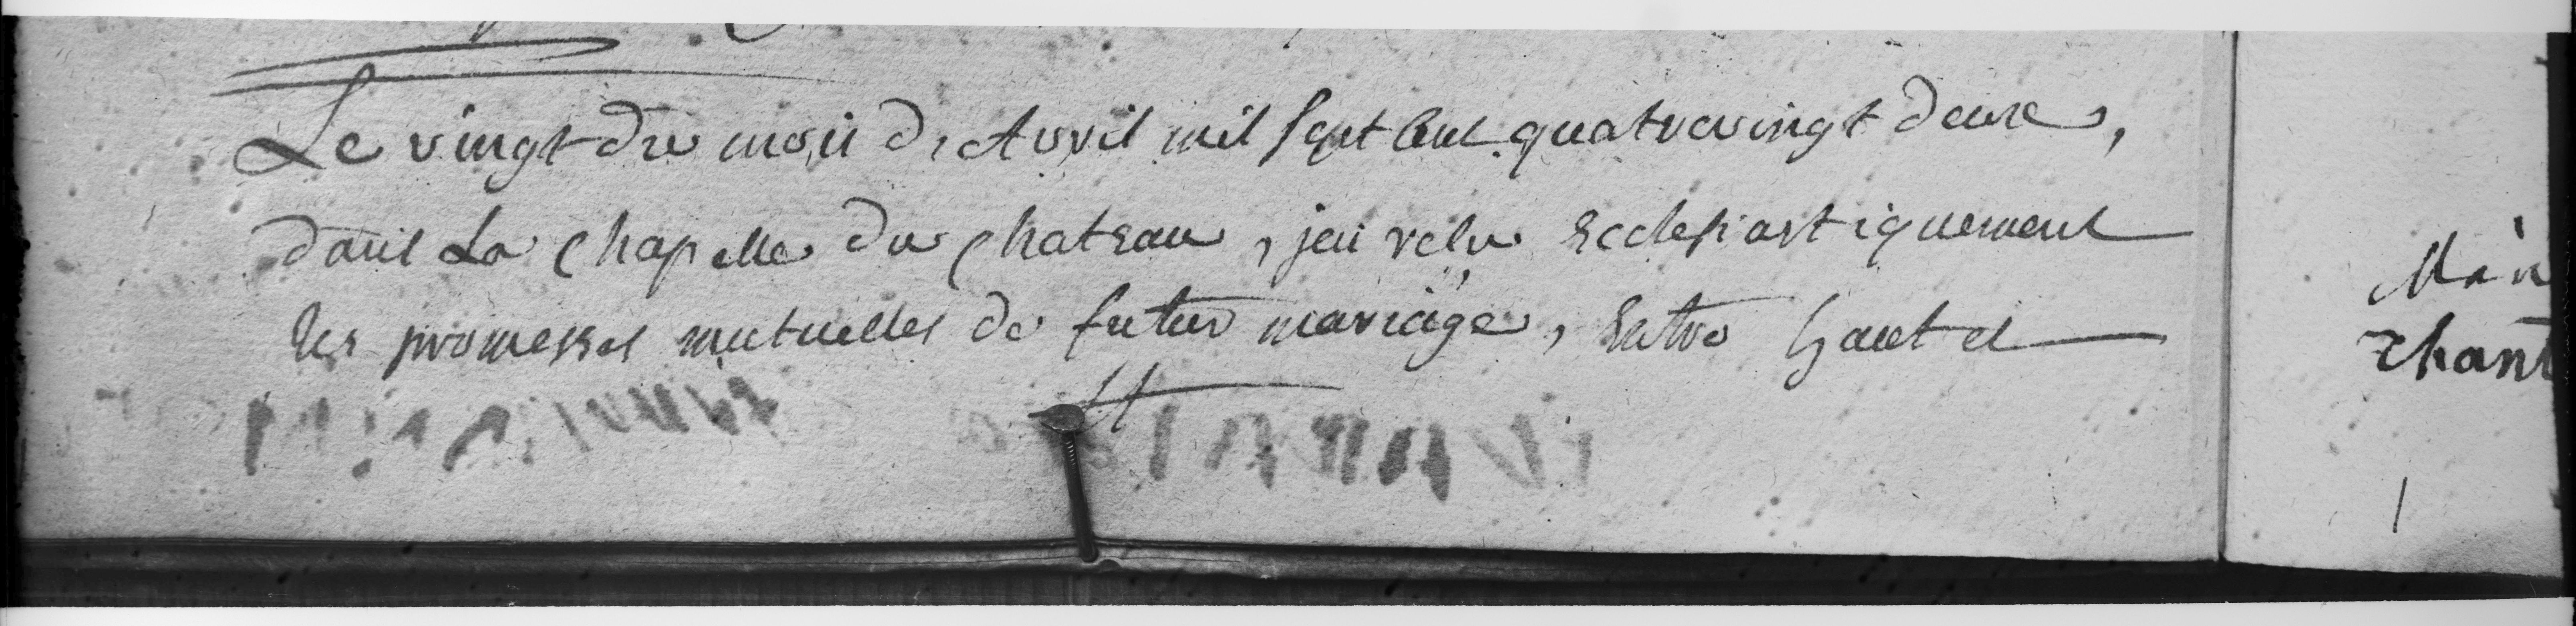 Le vingt du mois d'Avril mil sept cent quatrevingt deux,
dans La Chapelle du chateau, jai relu Ecclesiastiquement
les promesses mutuelles de futur mariage, Entre haut et